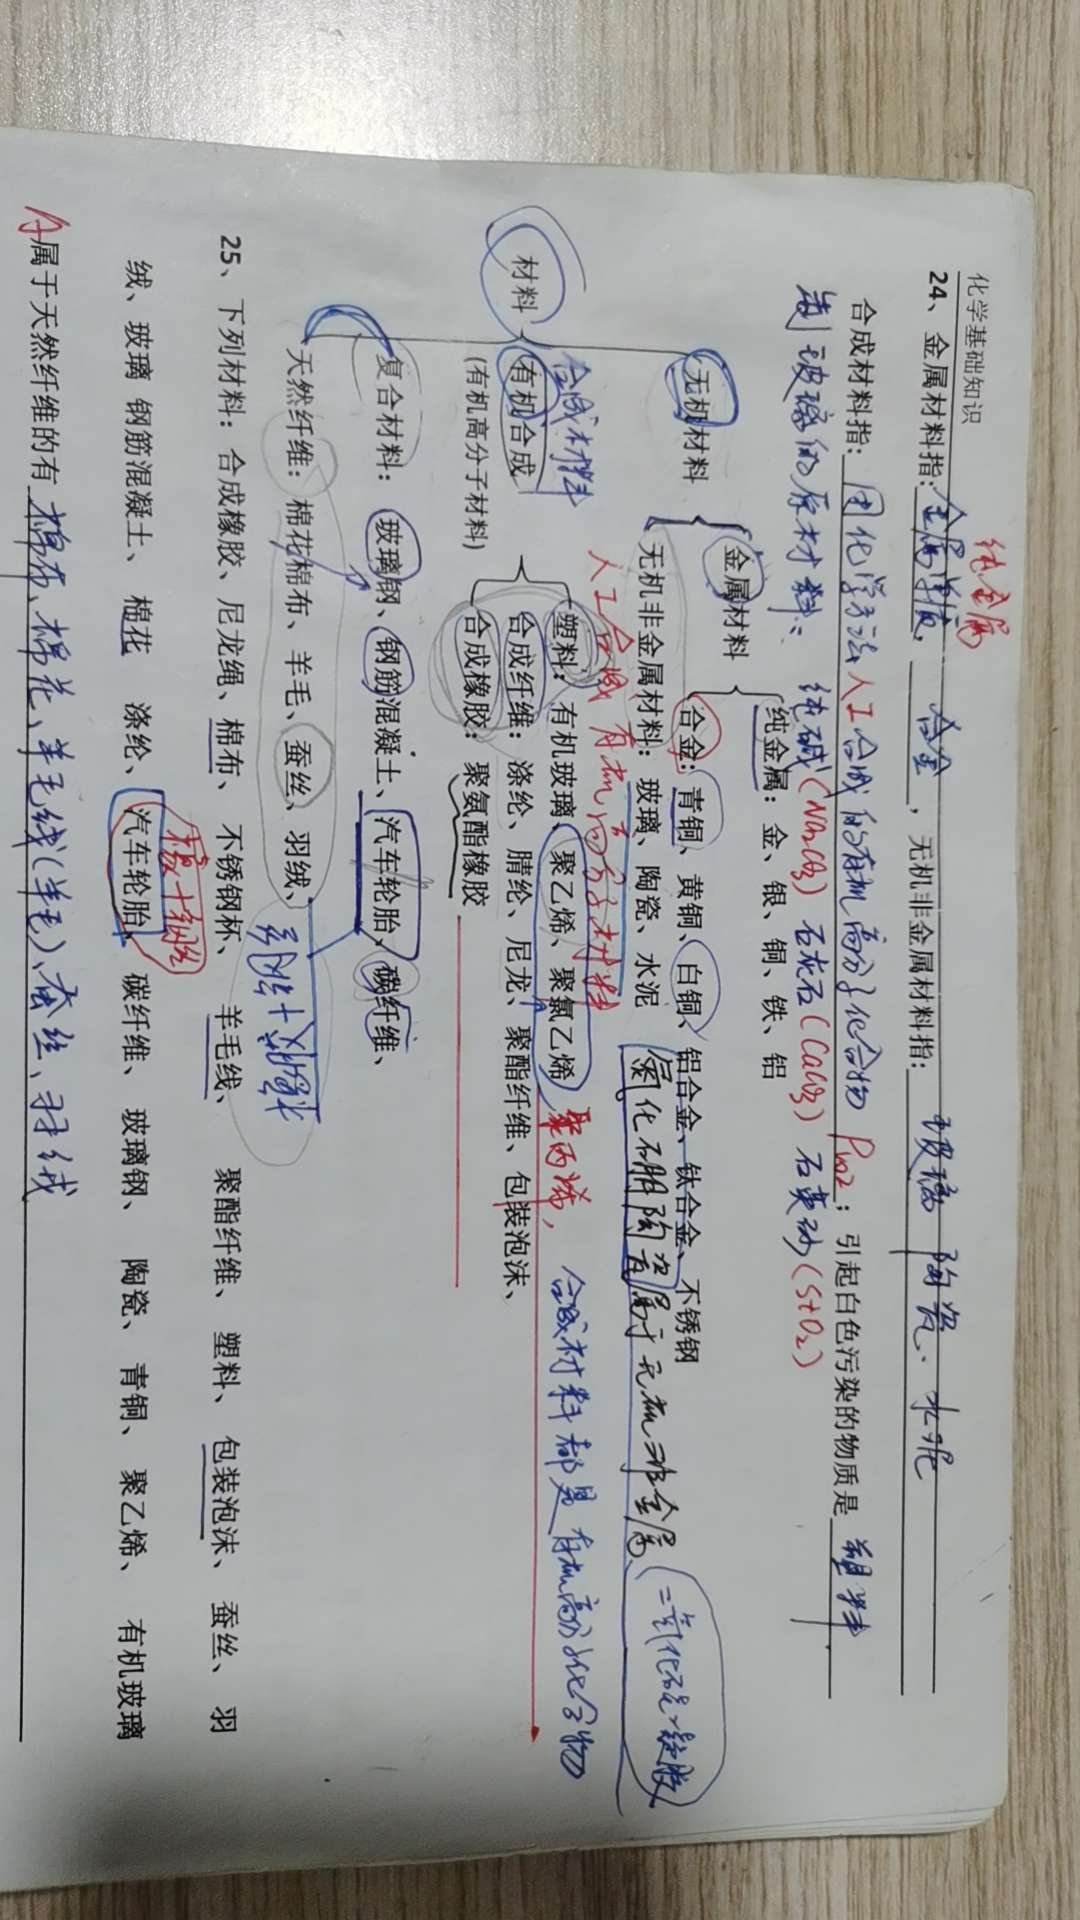 化学基础知识
纯金属
24、金属材料指: 金属单质, 合金, 无机非金属材料指: 玻璃 陶瓷、水泥
合成材料指: 用化学方法人工合成的有机高分子化合物; 引起白色污染的物质是 塑料
制玻璃的原材料: 纯碱(Na₂CO₃) 石灰石(CaCO₃) 石英砂(SiO₂)
纯金属: 金、银、铜、铁、铝
金属材料
无机材料
合金: 青铜、黄铜、白铜、铝合金、钛合金、不锈钢
无机非金属材料: 玻璃、陶瓷、水泥
氮化硼陶瓷属于无机非金属
二氧化硅凝胶
人工合成有机高分子材料
合成材料
材料
塑料: 有机玻璃、聚乙烯、聚氯乙烯
聚丙烯,
合成材料都是有机高分子化合物
有机合成
合成纤维: 涤纶、腈纶、尼龙、聚酯纤维、包装泡沫、
(有机高分子材料)
合成橡胶: 聚氨酯橡胶
复合材料: 玻璃钢、钢筋混凝土、汽车轮胎、碳纤维、
天然纤维: 棉花棉布、羊毛、蚕丝、羽绒、
25、下列材料: 合成橡胶、尼龙绳、棉布、不锈钢杯、羊毛线、聚酯纤维、塑料、包装泡沫、蚕丝、羽
绒、玻璃 钢筋混凝土、棉花 涤纶、汽车轮胎、碳纤维、玻璃钢、陶瓷、青铜、聚乙烯、有机玻璃
属于天然纤维的有: 棉布、棉花、羊毛线(羊毛)、蚕丝、羽绒